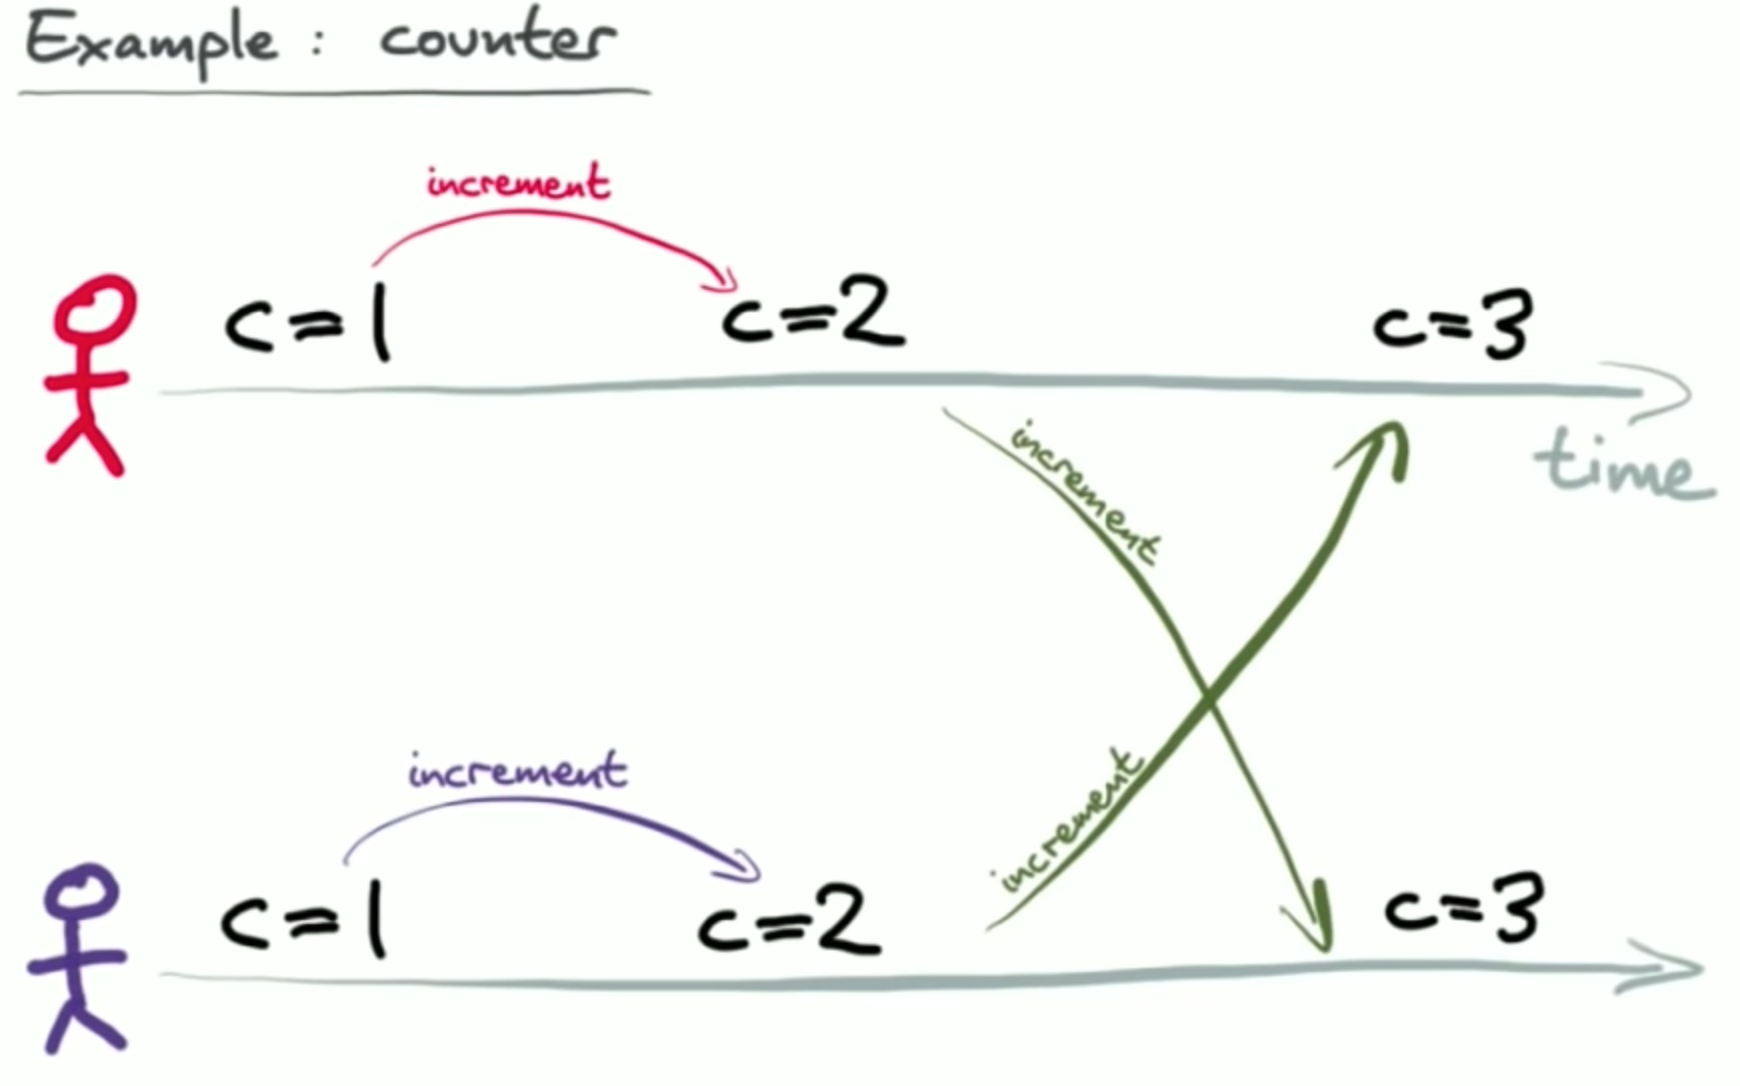 Example : counter
increment
c=1
c=2
c=3
time
increment
increment
increment
c=1
c=2
c=3